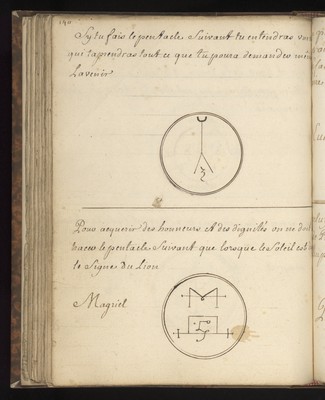 140
Sy tu fais le pentacle Suivant tu entendras
qui taprendras tout ce que tu poura demander
Lavenir
Pour acquerir des honneurs et des dignités on ne doit
tracer le pentacle Suivant que lorsque le Soleil est
le Signe Du Lion
Magriel
M